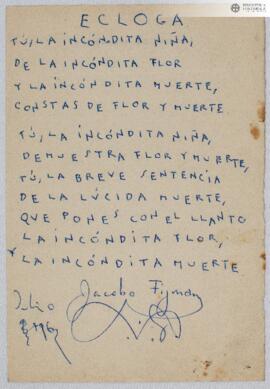 ECLOGA
TÚ, LA INCÓNDITA NIÑA,
DE LA INCÓNDITA FLOR
Y LA INCÓNDITA MUERTE,
CONSTAS DE FLOR Y MUERTE
TÚ, LA INCÓNDITA NIÑA,
DEMUESTRA FLOR Y MUERTE,
TÚ, LA BREVE SENTENCIA
DE LA LÚCIDA MUERTE,
QUE PONES CON EL LLANTO
LA INCÓNDITA FLOR,
Y LA INCÓNDITA MUERTE
Jacobo Fijman
Julio